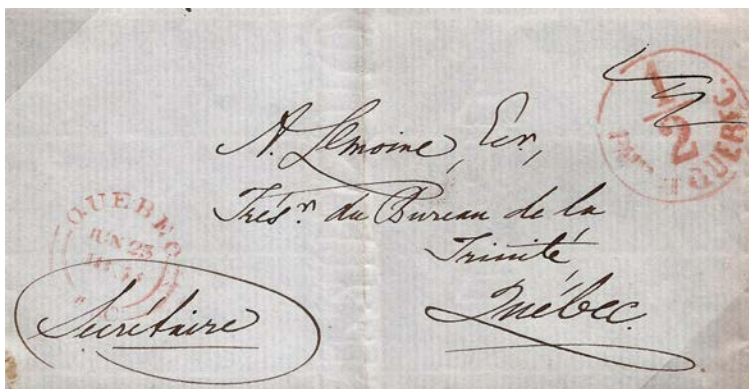 1/2
PAID QUEBEC.
A. Lemoine, Ecr,
Trésr. du Bureau de la
Trinité,
Québec.
QUEBEC
JUN 23
Secrétaire